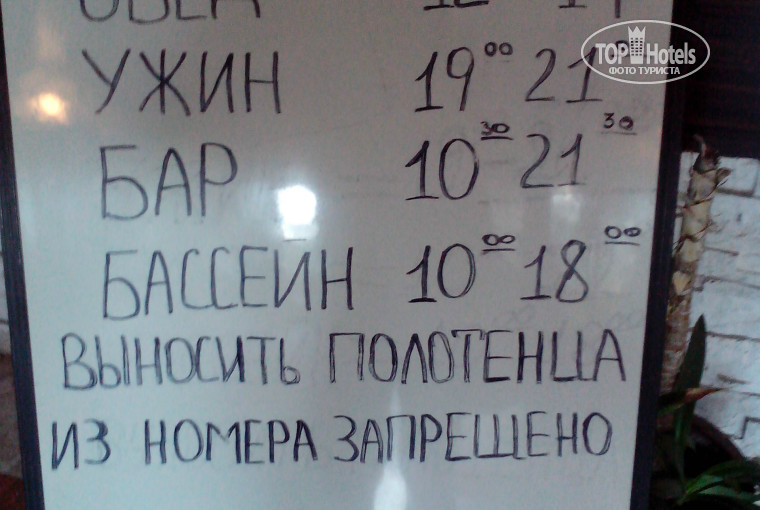 ОБЕД 12 14
УЖИН 19 00 21 00
БАР 10 30 21 30
БАССЕЙН 10 00 18 00
ВЫНОСИТЬ ПОЛОТЕНЦА
ИЗ НОМЕРА ЗАПРЕЩЕНО
TOP Hotels
ФОТО ТУРИСТА